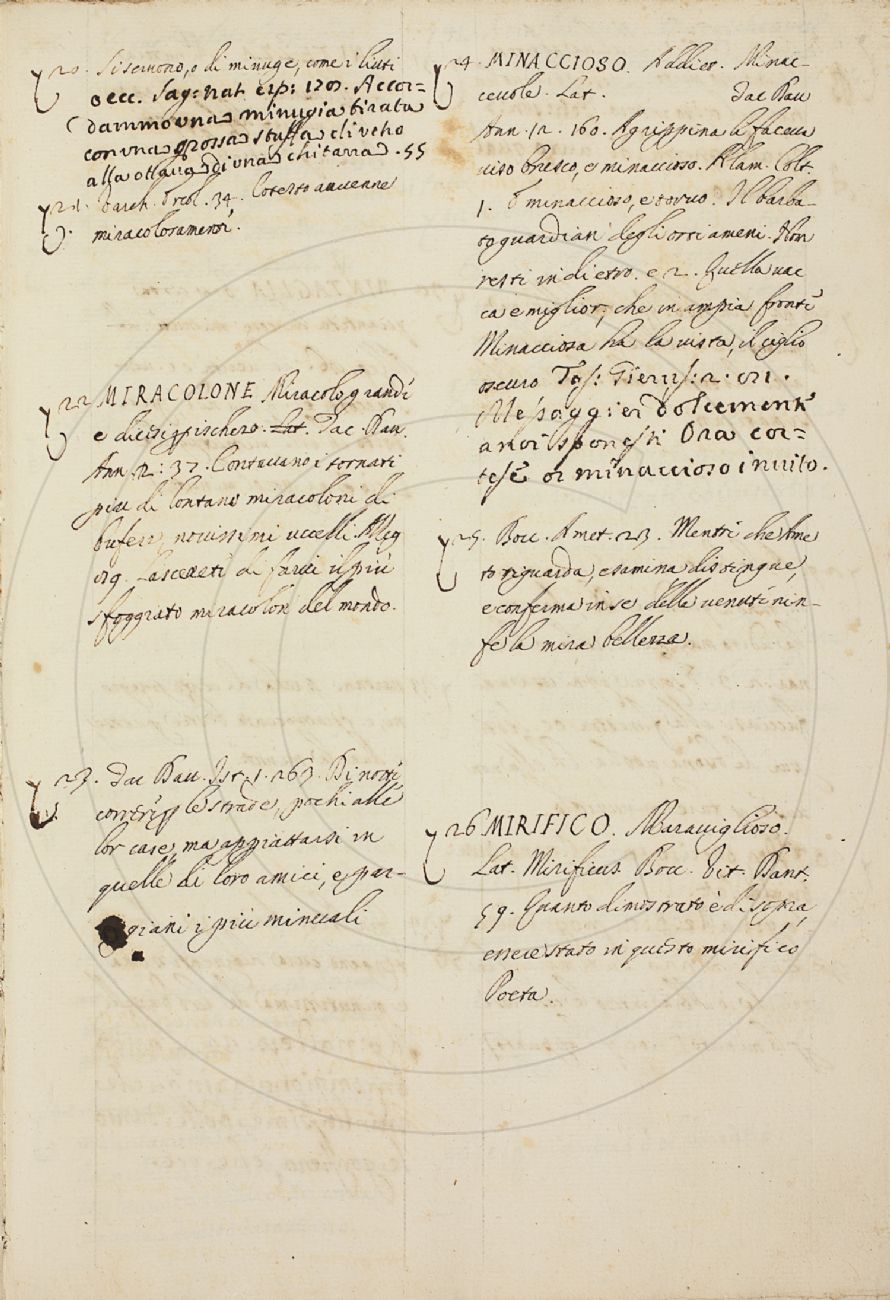 20. Si servono, o di minuge, come i liuti
o ecc. Sag: nat. esp: 120. Accor=
dammo una minugia tirata
con una grossa stuffa di vcho
alla ottava di una chitarra. 55
21. Varch. Ercol. 34. Cotesto avvenne
miracolosamentè.
22 MIRACOLONE Miracolo grande
e dicesi p ischerzo. Lat. Dav.
Ann. 2: 37. Contavano i tornati
più di lontano miracoloni di
bufere, novissimi uccelli. Alleg
Lasceretè di farci il più
sfoggiato miracolon del mondo.
23. Dav. Ist. 1. 263. Di notte
contrapp le strade, pochi alle
lor case, ma appiattarsi in
quelle di loro amici, e par-
giani i più minuali
24. MINACCIOSO. Addiet. Minac-
cevole. Lat. Tac Dav
Ann. 12. 160. Agrippina le faceva
viso brusco, e minaccioso. Alam. Colt.
1. È minaccioso, e torvo. Il barba-
to guardian degli orti ameni. Non
resti indietro. e 2. Quella vac
ca è miglior, che in ampia frontè
Minacciosa ha la vista, il ciglio
oscuro Tas: Gierus: 2. 021.
Messaggier dolcementè
a noi sponesti Ora cor=
tesè or minaccioso invito.
25. Bocc. Amet. 23. Mentrè che Ame
to riguarda, esamina distingue,
e conferma in se delle venutè nin-
fe la mira bellezza.
26 MIRIFICO. Maraviglioso.
Lat. Mirificus Bocc. Vit. Dant.
59. Quanto dimostrato è di sopra,
essere stato in questo mirifico
Poeta.